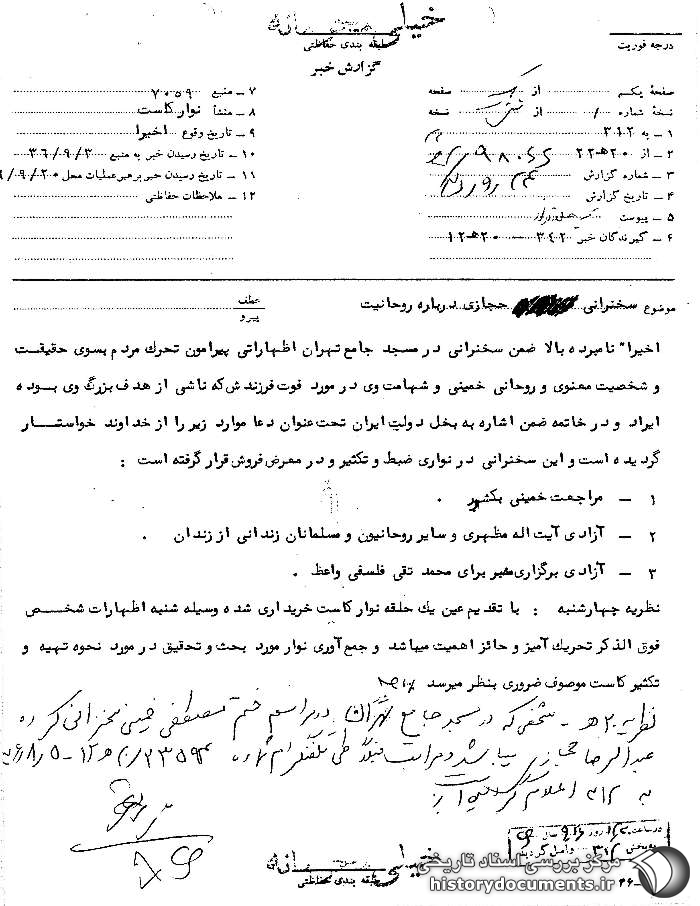 خیلی محرمانه
طبقه بندی حفاظتی
درجه فوریت
گزارش خبر
صفحهٔ یکم از یک صفحه
نسخهٔ شماره ۱ از نسخه
۱ – به ۳۱۲
۲ – از ۲۰هـ۲۲
۳ – شماره گزارش
۴ – تاریخ گزارش
۵ – پیوست
۶ – گیرندگان خبر ۳۴۲ – ۲۰هـ۱۲
۷ – منبع ۷۰۵۹
۸ – منشأ نوار کاست
۹ – تاریخ وقوع اخیرا
۱۰ – تاریخ رسیدن خبر به منبع ۳۶/۹/۳
۱۱ – تاریخ رسیدن خبر برهبر عملیات محل ۶/۹/۲۰
۱۲ – ملاحظات حفاظتی
موضوع سخنرانی حجازی درباره روحانیت
عطف
پیرو
اخیرا" نامبرده بالا ضمن سخنرانی در مسجد جامع تهران اظهاراتی پیرامون تحرک مردم بسوی حقیقت
و شخصیت معنوی و روحانی خمینی و شهامت وی در مورد فوت فرزندش که ناشی از هدف بزرگ وی بوده
ایراد و در خاتمه ضمن اشاره به بخل دولت ایران تحت عنوان دعا موارد زیر را از خداوند خواستار
گردیده است و این سخنرانی در نواری ضبط و تکثیر و در معرض فروش قرار گرفته است :
۱ – مراجعت خمینی بکشور .
۲ – آزادی آیت اله مظهری و سایر روحانیون و مسلمانان زندانی از زندان .
۳ – آزادی برگزاری منبر برای محمد تقی فلسفی واعظ .
نظریه چهارشنبه : با تقدیم عین یک حلقه نوار کاست خریداری شده وسیله شنبه اظهارات شخص
فوق الذکر تحریک آمیز و حائز اهمیت میباشد و جمع آوری نوار مورد بحث و تحقیق در مورد نحوه تهیه و
تکثیر کاست موصوف ضروری بنظر میرسد
نظریه ۲۰هـ – شخصی که در مسجد جامع تهران در مراسم ختم مصطفی خمینی سخنرانی کرده
عبدالرضا حجازی میباشد و مراتب قبلاً طی تلگرام شماره
به ۳۱۲ اعلام گردیده است
خیلی محرمانه
طبقه بندی حفاظتی
مرکز بررسی اسناد تاریخی
historydocuments.ir